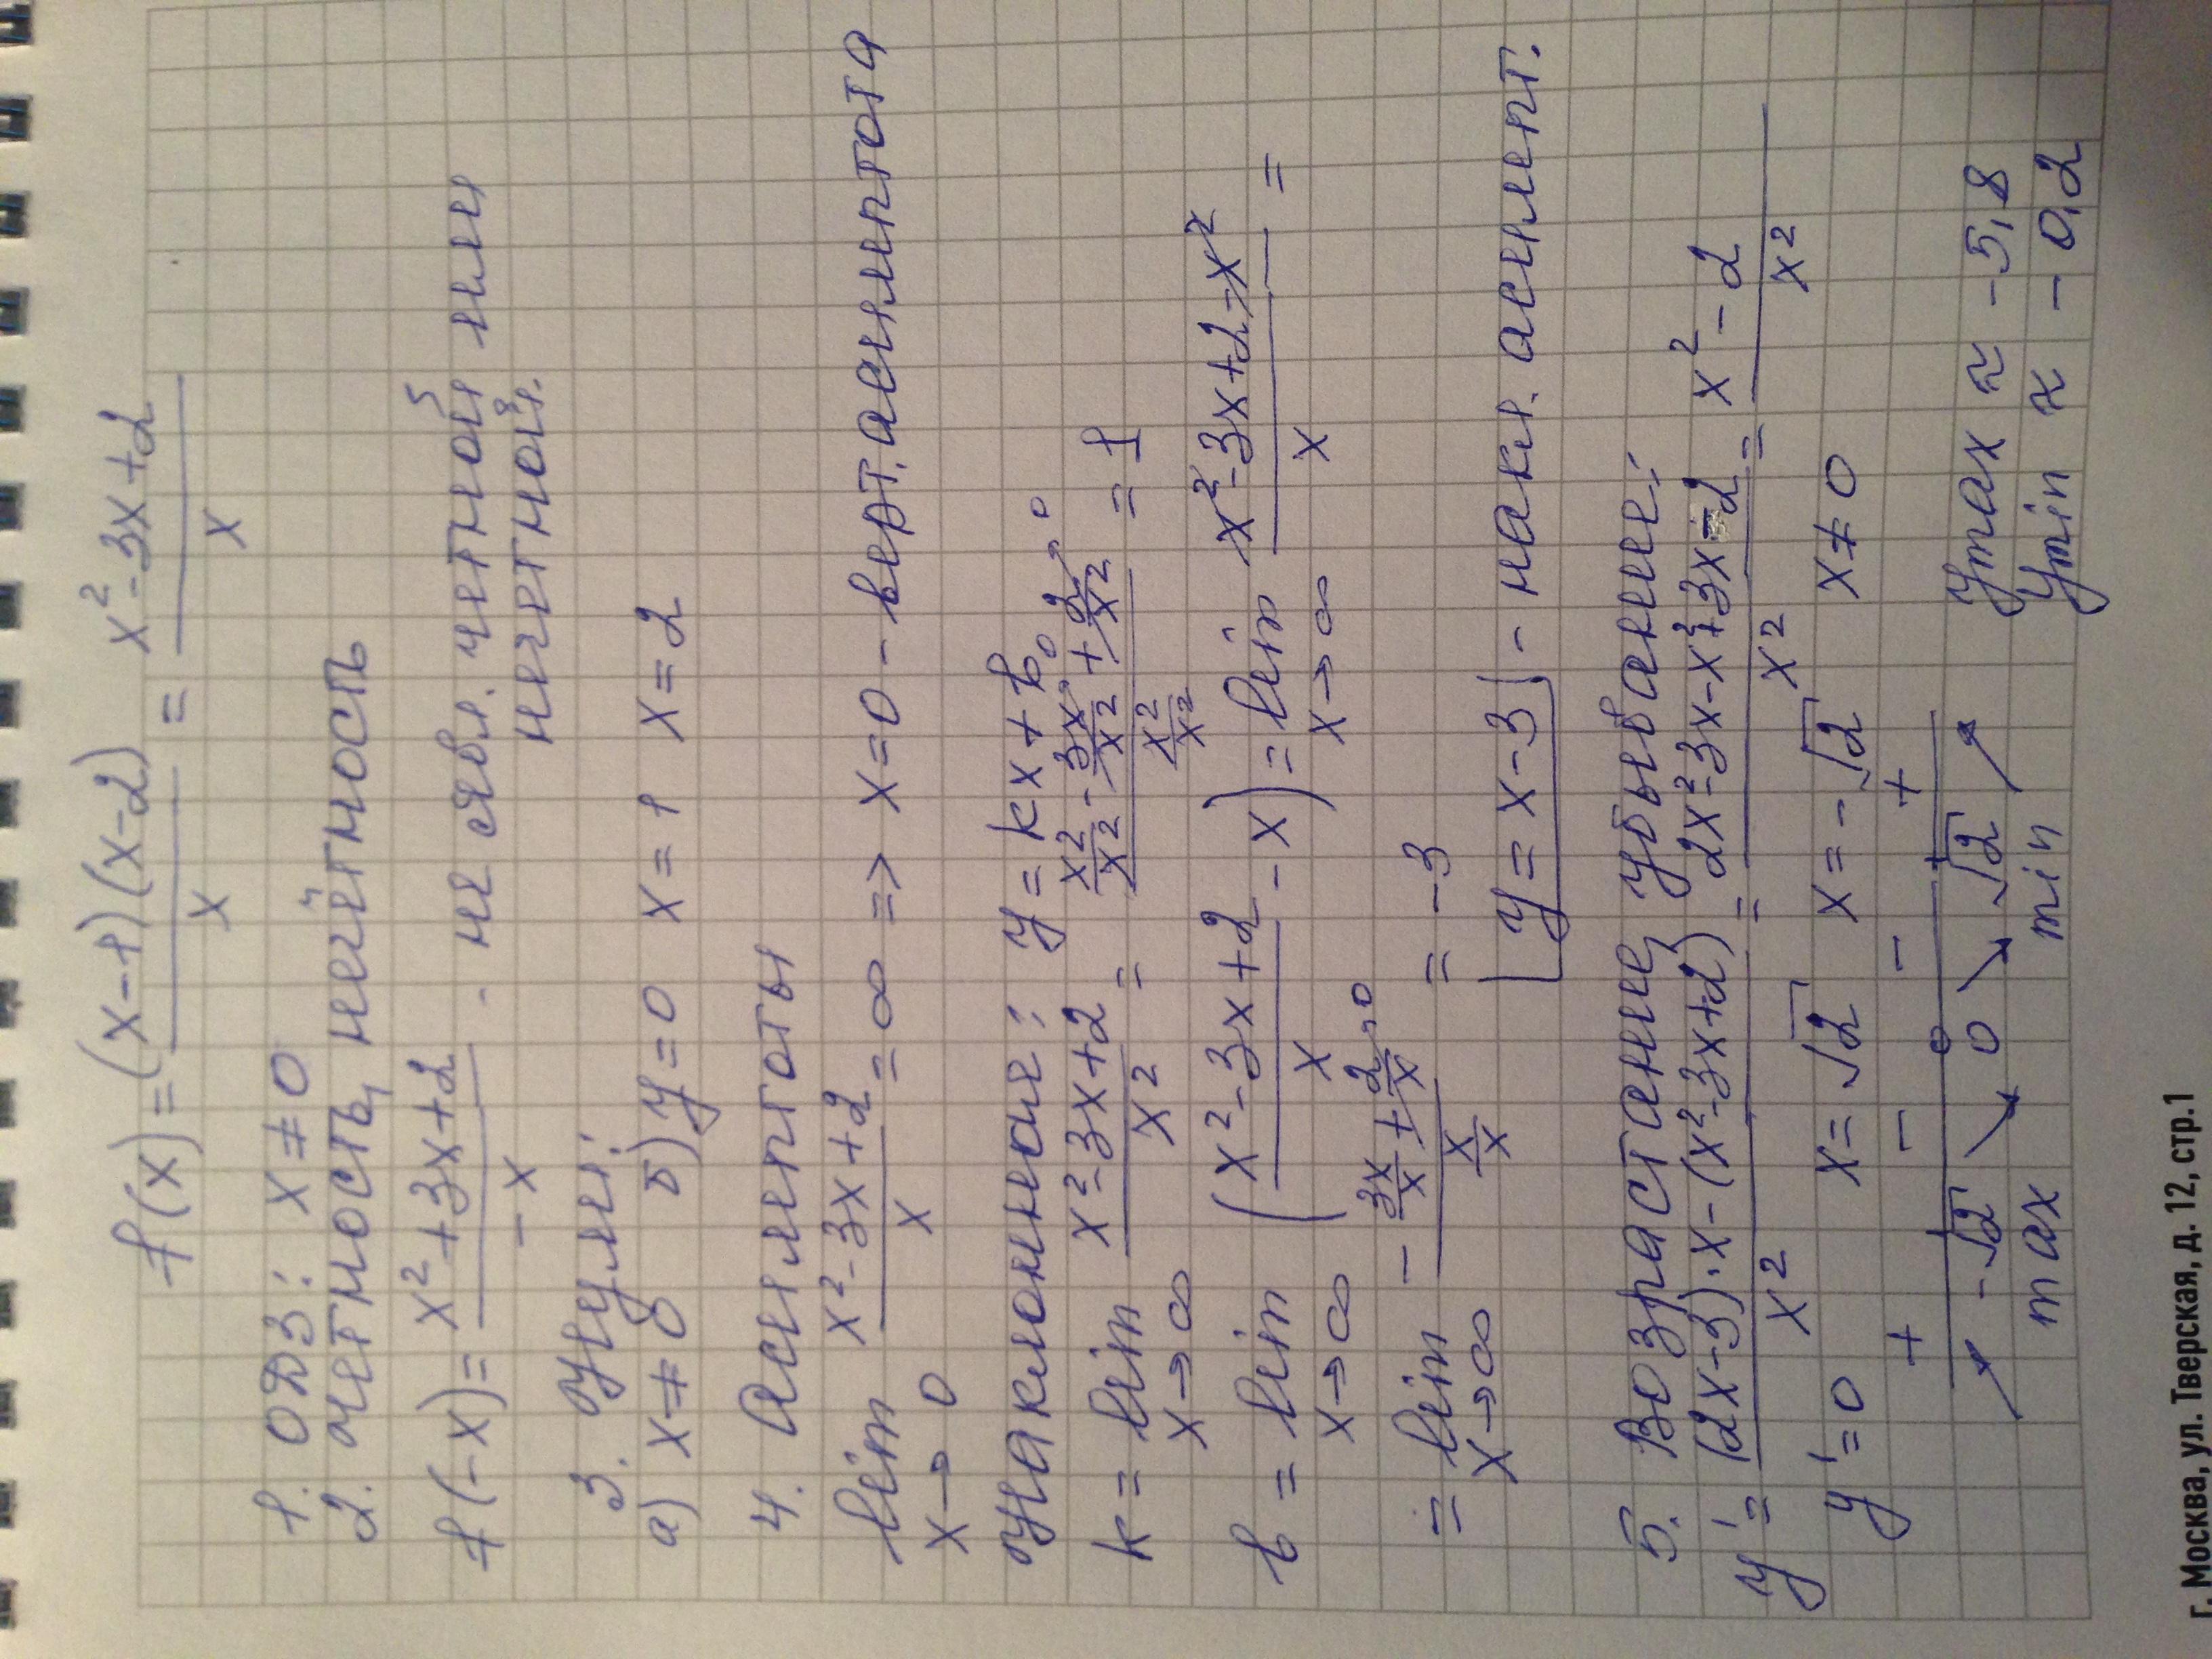 f(x) = (x-1)(x-2)/x = x²-3x+2/x
1. ОДЗ: x ≠ 0
2. четность, нечётность
f(-x) = x²+3x+2/-x - не явл. четной или
нечетной.
3. Нули:
а) x ≠ 0 б) y=0 x=1 x=2
4. Асимптоты
lim x→0 x²-3x+2/x = ∞ => x=0 - верт. асимптота
Наклонная: y = kx+b
k = lim x→∞ x²-3x+2/x² = x²/x² - 3x/x² →0 + 2/x² →0 / x²/x² = 1
b = lim x→∞ (x²-3x+2/x - x) = lim x→∞ x²-3x+2-x²/x =
= lim x→∞ -3x/x + 2/x →0 / x/x = -3
y = x-3 - накл. асимпт.
5. Возрастание, убывание:
y' = (2x-3)·x-(x²-3x+2)/x² = 2x²-3x-x²+3x-2/x² = x²-2/x²
y'=0 x=√2 x=-√2 x≠0
+ - - +
-√2 0 √2
max min
ymax ≈ -5,8
ymin ≈ -0,2
г. Москва, ул. Тверская, д. 12, стр.1